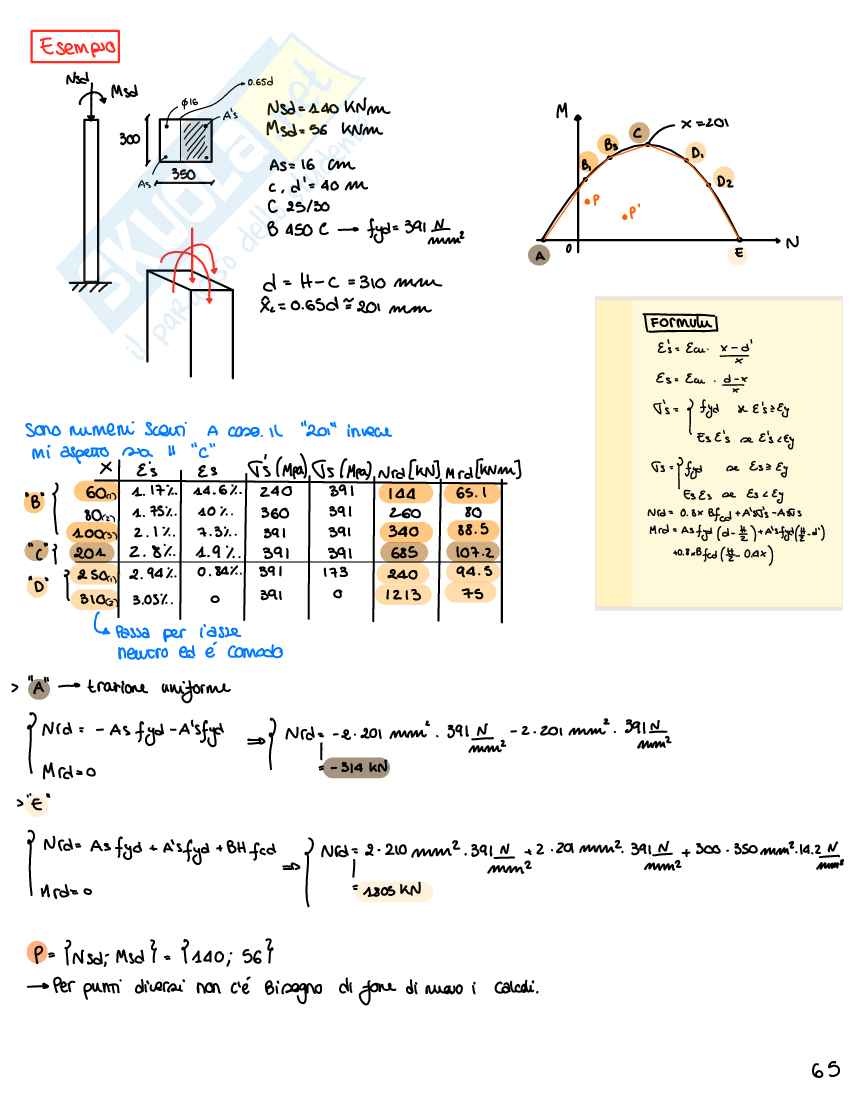 Esempio
Nsd
Msd
ϕ16
0.65d
A's
300
As
350
Nsd = 140 KNm
Msd = 56 KNm
As = 16 cm
c, d' = 40 m
C 25/30
B 450 C → fyd = 391 N/mm²
d = H-C = 310 mm
= 0.65d ≅ 201 mm
M
x=201
B₁
C
D₁
D₂
P
P'
A
0
E
N
Formule
ε's = εcu · (x-d')/x
εs = εcu · (d-x)/x
σ's = { fyd se ε's ≥ εy
Es ε's se ε's < εy
σs = { fyd se εs ≥ εy
Es εs se εs < εy
Nrd = 0.8x B fcd + A'sσ's - Asσs
Mrd = As fyd (d - H/2) + A's fyd (H/2 - d')
+0.8xB fcd (H/2 - 0.4x)
Sono numeri scelti A caso. Il "201" invece
mi aspetto sia il "C"
x ε's εs σ's (Mpa) σs (Mpa) Nrd [KN] Mrd [KNm]
"B" 60(1) 1.17%. 14.6%. 240 391 144 65.1
80(2) 1.75%. 10%. 360 391 260 80
100(3) 2.1%. 7.3%. 391 391 340 88.5
"C" 201 2.8%. 1.9%. 391 391 685 107.2
"D" 250(1) 2.94%. 0.84%. 391 173 240 94.5
310(2) 3.05%. 0 391 0 1213 75
Passa per l'asse
neutro ed é comodo
> "A" → trazione uniforme
Nrd = - As fyd - A's fyd ⇒ Nrd = -2·201 mm² · 391 N/mm² - 2·201 mm² · 391 N/mm²
Mrd = 0
= - 314 KN
> "E"
Nrd = As fyd + A's fyd + BH fcd ⇒ Nrd = 2·210 mm² · 391 N/mm² + 2·201 mm² · 391 N/mm² + 300·350 mm² · 14.2 N/mm²
Mrd = 0
= 1805 KN
P = {Nsd; Msd} = {140; 56}
→ Per punti diversi non c'é Bisogno di fare di nuovo i calcoli.
65
SKUOLA.net